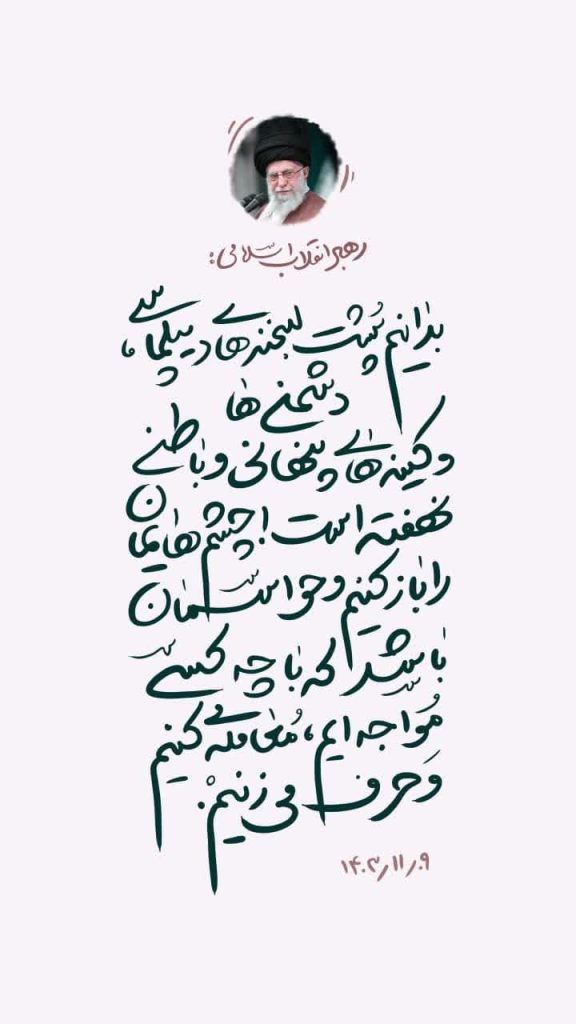 رهبر انقلاب اسلامی:
بدانیم پُشت لبخندهای دیپلماسی،
دشمنی‌ها
و کینه‌های پنهانی و باطنی
نهفته است! چشم‌هایمان
را باز کنیم و حواسمان
باشد که با چه کسی
مُواجه‌ایم، مُعامله می‌کنیم
وَ حرف می‌زنیم.
۱۴۰۳٫۱۱٫۰۹